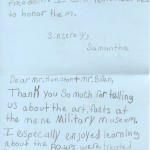 to honor them.
Sincerely,
Samantha
Dear Mr. Hunston + Mr. Bilan,
Thank you so much for telling
us about the artifacts
at the Military museum,
I especially enjoyed learning
about the P.O.W.s were treated